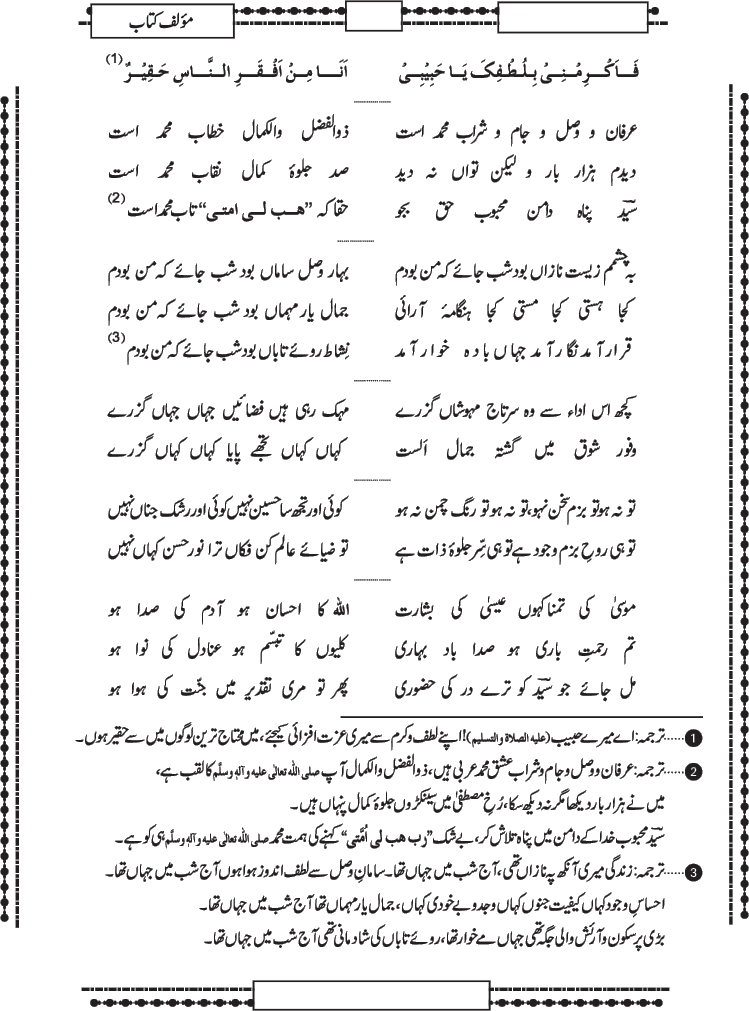 مؤلف کتاب
فَاَکْرِمْنِیْ بِلُطْفِکَ یَا حَبِیْبِیْ اَنَا مِنْ اَفْقَرِ النَّاسِ حَقِیْرٌ (1)
عرفان و وصل و جام و شراب محمد است ذوالفضل والکمال خطاب محمد است
دیدم ہزار بار و لیکن تواں نہ دید صد جلوۂ کمال نقاب محمد است
سیّدؔ پناہ دامن محبوب حق بجو حقا کہ ”ھب لی امتی“ تاب محمد است (2)
بہ چشمم زیست نازاں بود شب جائے کہ من بودم بہار وصل ساماں بود شب جائے کہ من بودم
کجا ہستی کجا مستی کجا ہنگامۂ آرائی جمال یار مہماں بود شب جائے کہ من بودم
قرار آمد نگار آمد جہاں بادہ خوار آمد نِشاط روئے تاباں بود شب جائے کہ من بودم (3)
کچھ اس اداء سے وہ سرتاج مہوشاں گزرے مہک رہی ہیں فضائیں جہاں جہاں گزرے
وفور شوق میں گشتہ جمال اَلست کہاں کہاں تجھے پایا کہاں کہاں گزرے
تو نہ ہو تو بزم سخن نہ ہو، تو نہ ہو تو رنگ چمن نہ ہو کوئی اور تجھ سا حسین نہیں کوئی اور رشک جناں نہیں
تو ہی روحِ بزم وجود ہے تو ہی سِّر جلوۂ ذات ہے تو ضیائے عالم کن فکاں ترا نور حسن کہاں نہیں
موسیٰ کی تمنا کہوں عیسیٰ کی بشارت اللہ کا احسان ہو آدم کی صدا ہو
تم رحمتِ باری ہو صدا باد بہاری کلیوں کا تبسّم ہو عنادل کی نوا ہو
مل جائے جو سیّدؔ کو ترے در کی حضوری پھر تو مری تقدیر میں جنّت کی ہوا ہو
1 ......ترجمہ: اے میرے حبیب (علیہ الصلاۃ والتسلیم)! اپنے لطف و کرم سے میری عزت افزائی کیجئے، میں محتاج ترین لوگوں میں سے حقیر ہوں۔
2 ......ترجمہ: عرفان و وصل و جام و شراب عشق محمد عربی ہیں، ذوالفضل والکمال آپ صلی اللہ تعالٰی علیہ وآلہٖ وسلّم کا لقب ہے،
میں نے ہزار بار دیکھا مگر نہ دیکھ سکا، رُخِ مصطفیٰ میں سینکڑوں جلوۂ کمال پنہاں ہیں۔
سیّدؔ محبوب خدا کے دامن میں پناہ تلاش کر، بے شک ”رب ھب لی اُمَّتی“ کہنے کی ہمت محمد صلی اللہ تعالٰی علیہ وآلہٖ وسلّم ہی کو ہے۔
3 ......ترجمہ: زندگی میری آنکھ پہ نازاں تھی، آج شب میں جہاں تھا۔ سامانِ وصل سے لطف اندوز ہوا ہوں آج شب میں جہاں تھا۔
احساسِ وجود کہاں کیفیت جنوں کہاں وجد و بے خودی کہاں، جمال یار مہماں تھا آج شب میں جہاں تھا۔
بڑی پر سکون و آرئش والی جگہ تھی جہاں مے خوار تھا، روئے تاباں کی شادمانی تھی آج شب میں جہاں تھا۔